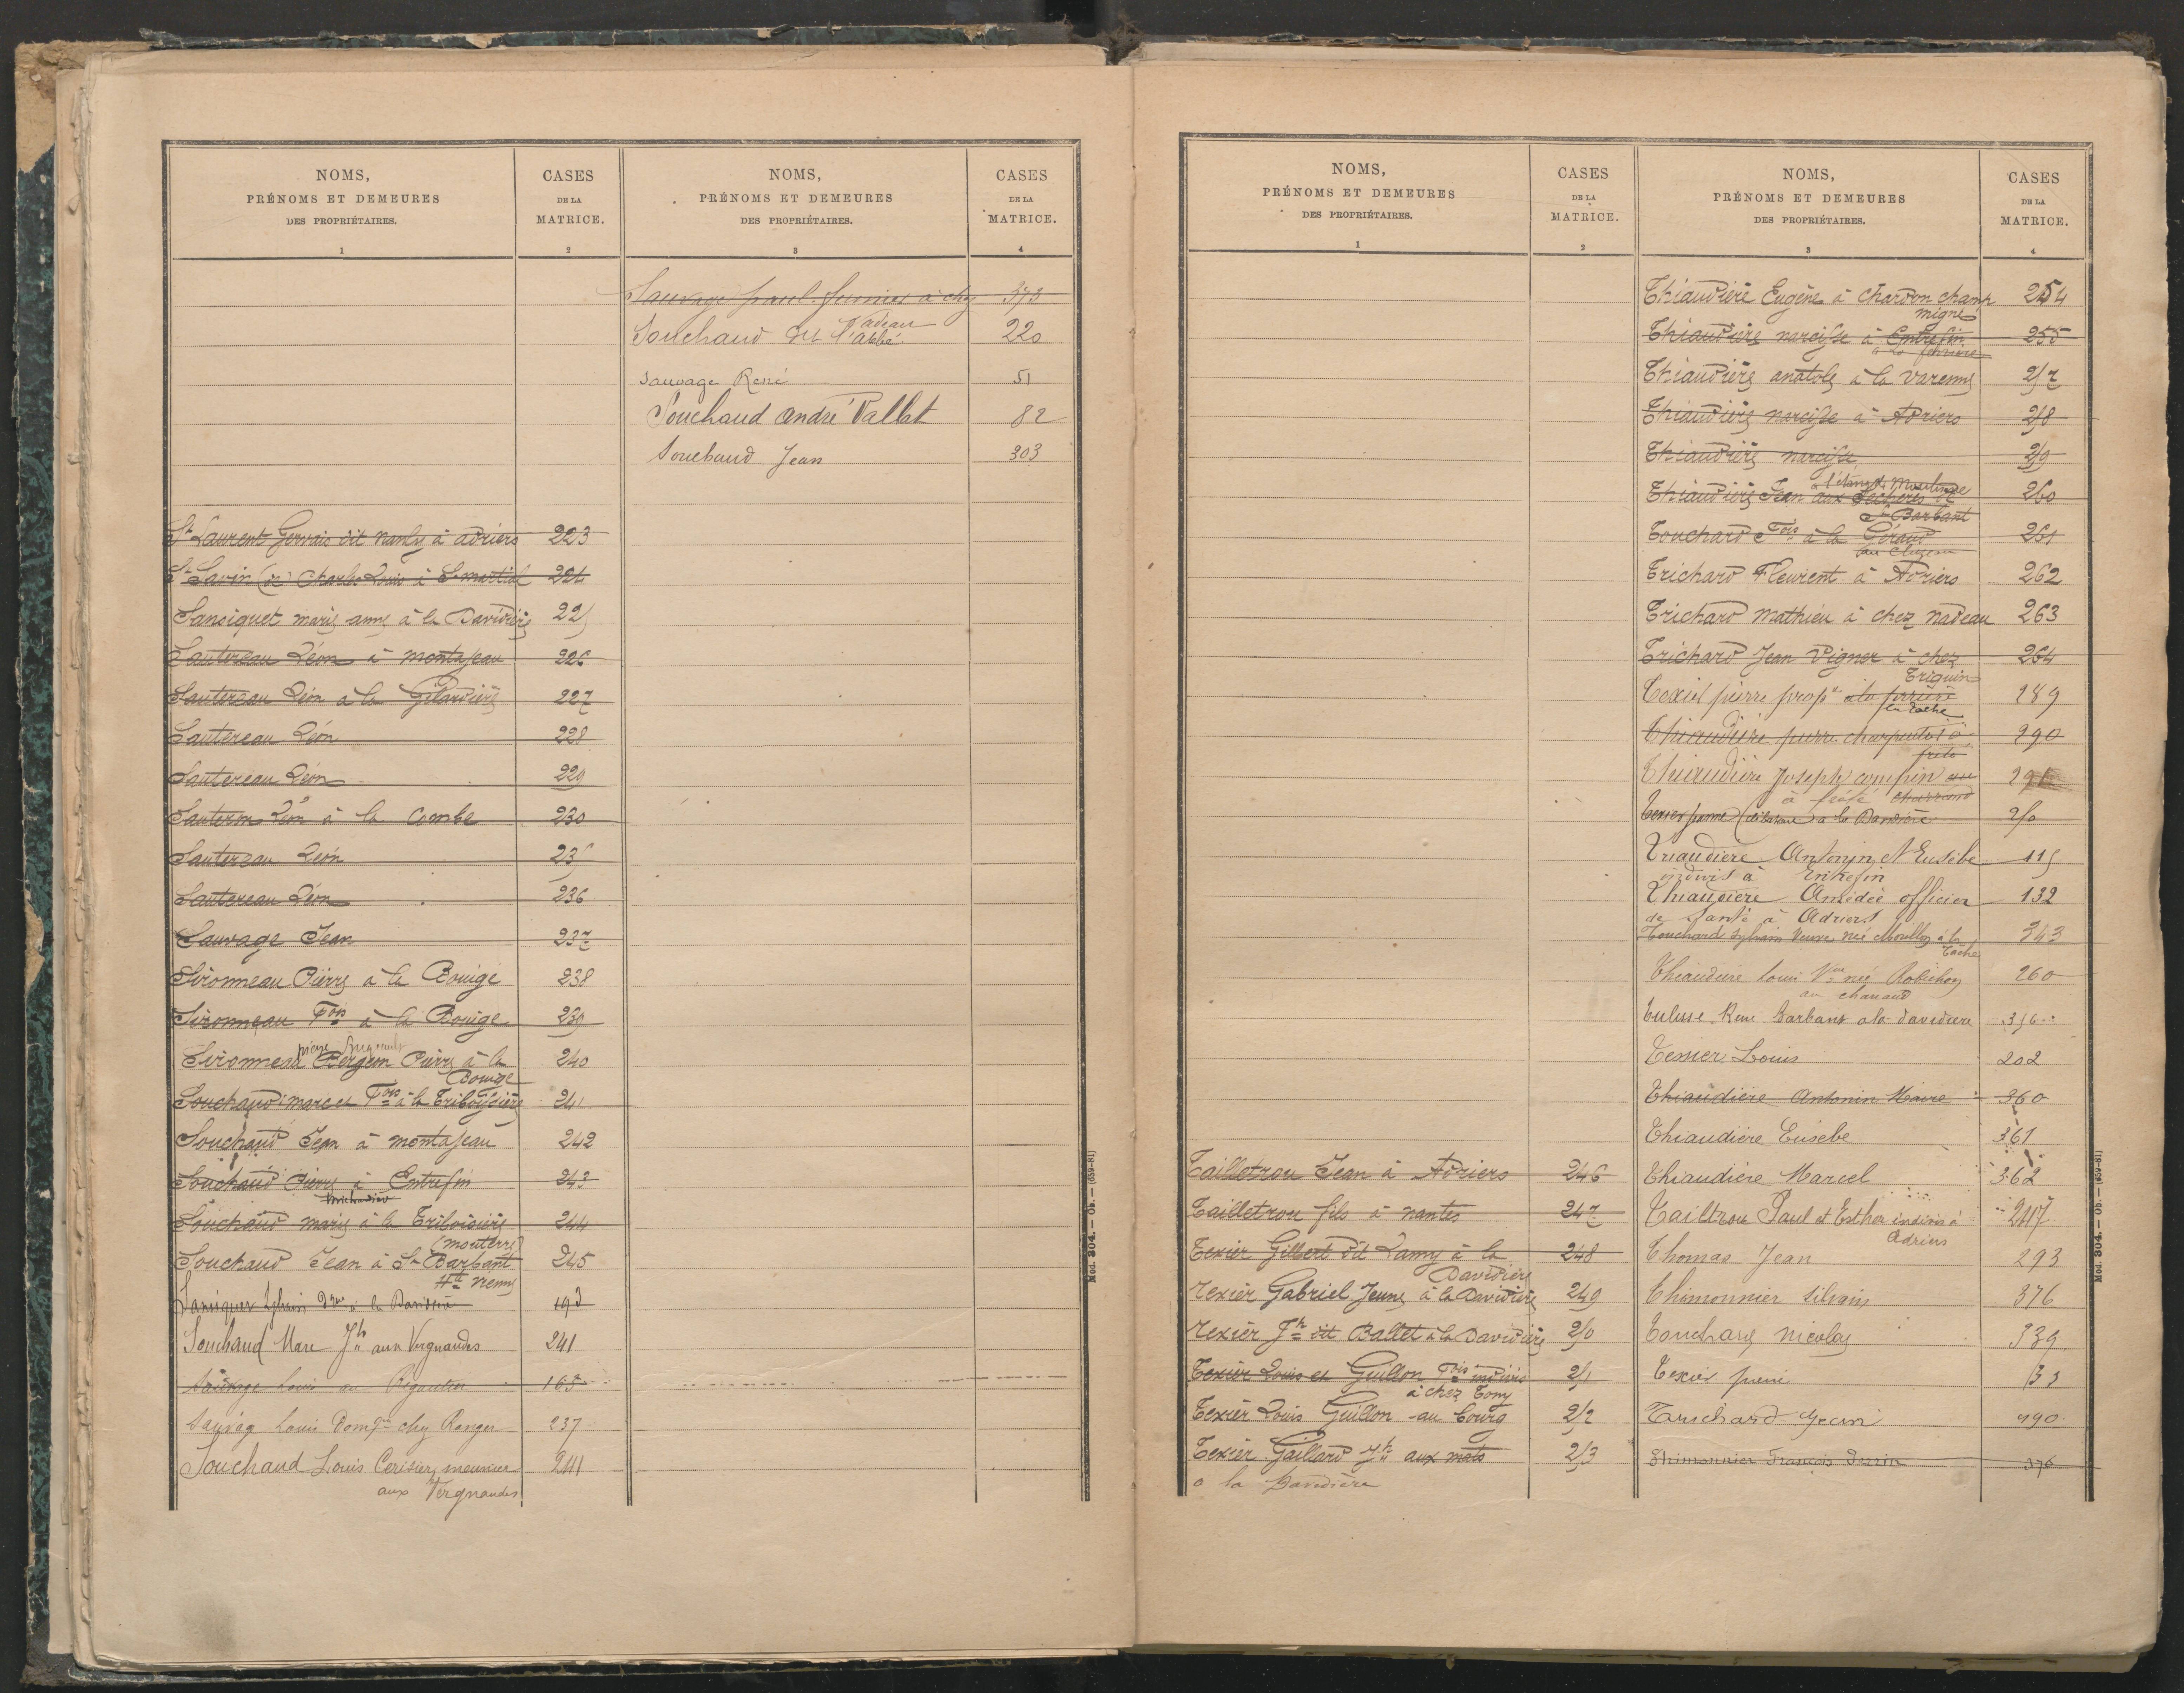 NOMS,
PRÉNOMS ET DEMEURES
DES PROPRIÉTAIRES.
1
CASES
DE LA
MATRICE.
2
St Laurent Gervais dit Nanly à adriers 223
St Savin (de) Charles Louis à St martial 224
Sansiquet marie anne à la Davidière 225
Sautereau Léon à montajeau 226
Sautereau Léon à la Gilardière 227
Sautereau Léon 228
Sautereau Léon 229
Sautereau Léon à la Combe 230
Sautereau Léon 235
Sautereau Léon 236
Sauvage Jean 237
Sironneau Pierre à la Bouige 238
Sironneau Fois à la Bouige 239
Sironneau Bergeon Pierre à la 240
Bouige
Souchaud marcel Fois à la Triboisière 241
Souchaud Jean à montajeau 242
Souchaud Pierre à Entrefin 243
Souchaud marie à la Triboisière 244
(mouterre)
Souchaud Jean à St Barbant 245
Hte Vienne
Sansiquet Sylvain à la Davidière 193
Souchaud Marc Jh aux Vergnaudes 241
Sauvage Louis au 163
Sauvage Louis chez Ranger 237
Souchaud Louis Cerisier, meunier 241
aux Vergnaudes
NOMS,
PRÉNOMS ET DEMEURES
DES PROPRIÉTAIRES.
3
CASES
DE LA
MATRICE.
4
Sauvage paul fermier à chez 373
Nadeau
Souchaud dit l'abbé 220
Sauvage René 51
Souchaud andré Vallat 82
Souchaud Jean 303
Mod. 304. — Ob. — (659-81)
NOMS,
PRÉNOMS ET DEMEURES
DES PROPRIÉTAIRES.
1
CASES
DE LA
MATRICE.
2
Tailletrou Jean à Adriers 246
Tailletrou fils à nantes 247
Texier Gilbert dit Lamy à la 248
Davidière
Texier Gabriel Jeune à la Davidière 249
Texier Jh dit Ballet à la Davidière 250
Texier Louis et Guillon Fois indivis 251
à chez Tony
Texier Louis Guillon au bourg 252
Texier Gaillard Jh aux mats 253
a la Davidière
NOMS,
PRÉNOMS ET DEMEURES
DES PROPRIÉTAIRES.
3
CASES
DE LA
MATRICE.
4
Thiaudière Eugène à Chardonchamp 254
migné
Thiaudière narcisse à Entrefin 255
Thiaudière anatole à la Varenne 257
Thiaudière narcisse à Adriers 258
Thiaudière narcisse 259
Thiaudière Jean aux 260
St Barbant
Touchard Fois à la Géraud 261
au Cluzeau
Trichard Fleurent à Adriers 262
Trichard mathieu à chez nadeau 263
Trichard Jean Vignor à chez 264
Triquin
Texier pierre propre 189
la tache
Thiaudière pierre charpentier à 290
frété
Thiaudière Joseph compin au
à frété charraud
Texier pierre à la Davidière 250
Thiaudière Antonin et Eusèbe 115
indivis à Entrefin
Thiaudière Amédée officier 132
de santé à Adriers
Touchard Sylvain Veuve née à la 343
Tache
Thiaudière Louis Vve née Robichon 260
au charraud
Tulusse René Barbans a la davidière 356
Tessier Louis 202
Thiaudière Antonin Maire 360
Thiaudière Eusèbe 361
Thiaudière Marcel 362
Tailtrou Paul et Esther indivis à 247
Adriers
Thomas Jean 293
Thimonnier silvain 376
Touchard nicolas 339
Texier pierre 133
Trichard Jean 190
Thimonnier François Perrin 376
Mod. 304. — Ob. — (659-81)